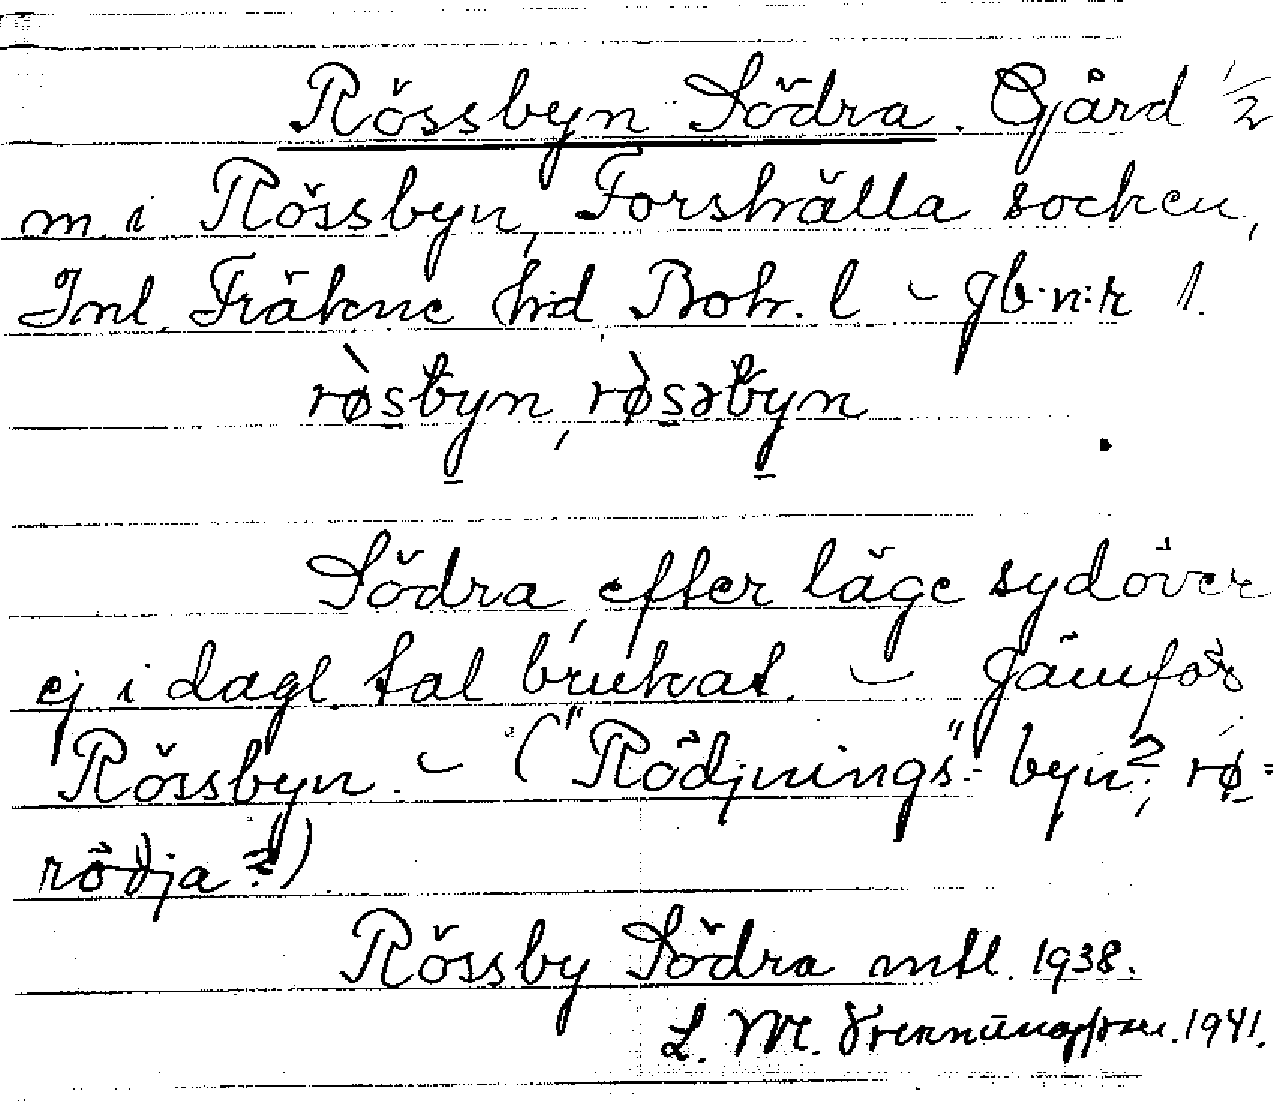 Rössbyn Södra. Gård 1/2
m i Rössbyn, Forshälla socken,
Inl. Fräkne hd Boh. l – jb.n:r 1.
røsbyn, røsərbyn
Södra, efter läge sydöver
ej i dagl. tal brukat. – Jämför
Rössbyn. – ("Rödjnings"-byn?, rø =
rödja?)
Rössby Södra mtl. 1938.
L. M. 1941.